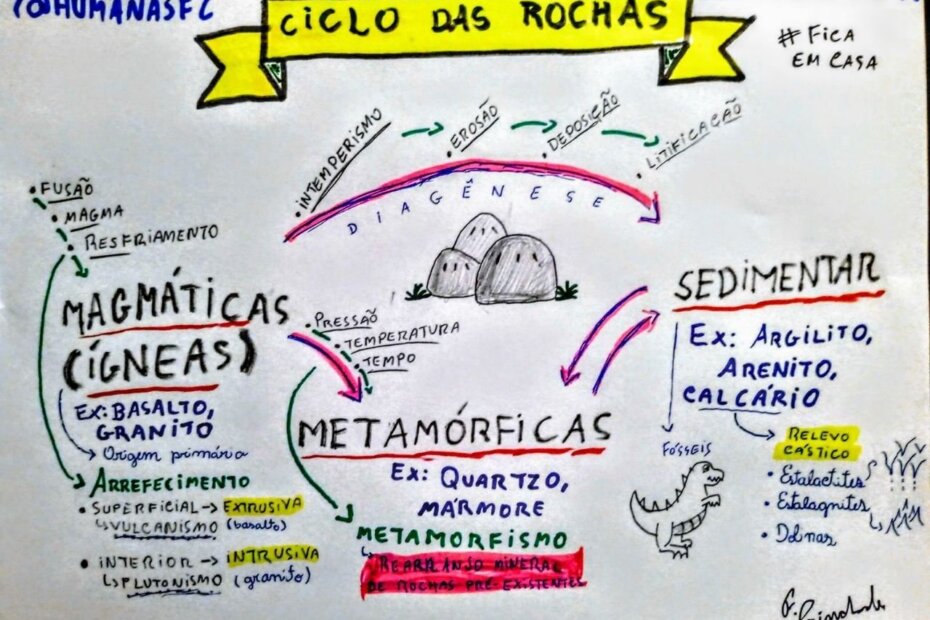 @HUMANASFC
CICLO DAS ROCHAS
# FICA
EM CASA
• INTEMPERISMO
• EROSÃO
• DEPOSIÇÃO
• LITIFICAÇÃO
DIAGÊNESE
• FUSÃO
• MAGMA
• RESFRIAMENTO
MAGMÁTICAS
(ÍGNEAS)
EX: BASALTO,
GRANITO
Origem primária
ARREFECIMENTO
• SUPERFICIAL → EXTRUSIVA
VULCANISMO (basalto)
• INTERIOR → INTRUSIVA
PLUTONISMO (granito)
• PRESSÃO
• TEMPERATURA
• TEMPO
METAMÓRFICAS
EX: QUARTZO,
MÁRMORE
METAMORFISMO
REARRANJO MINERAL
DE ROCHAS PRÉ-EXISTENTES
SEDIMENTAR
EX: ARGILITO,
ARENITO,
CALCÁRIO
FÓSSEIS
RELEVO
CÁSTICO
• Estalactites
• Estalagnites
• Dolinas